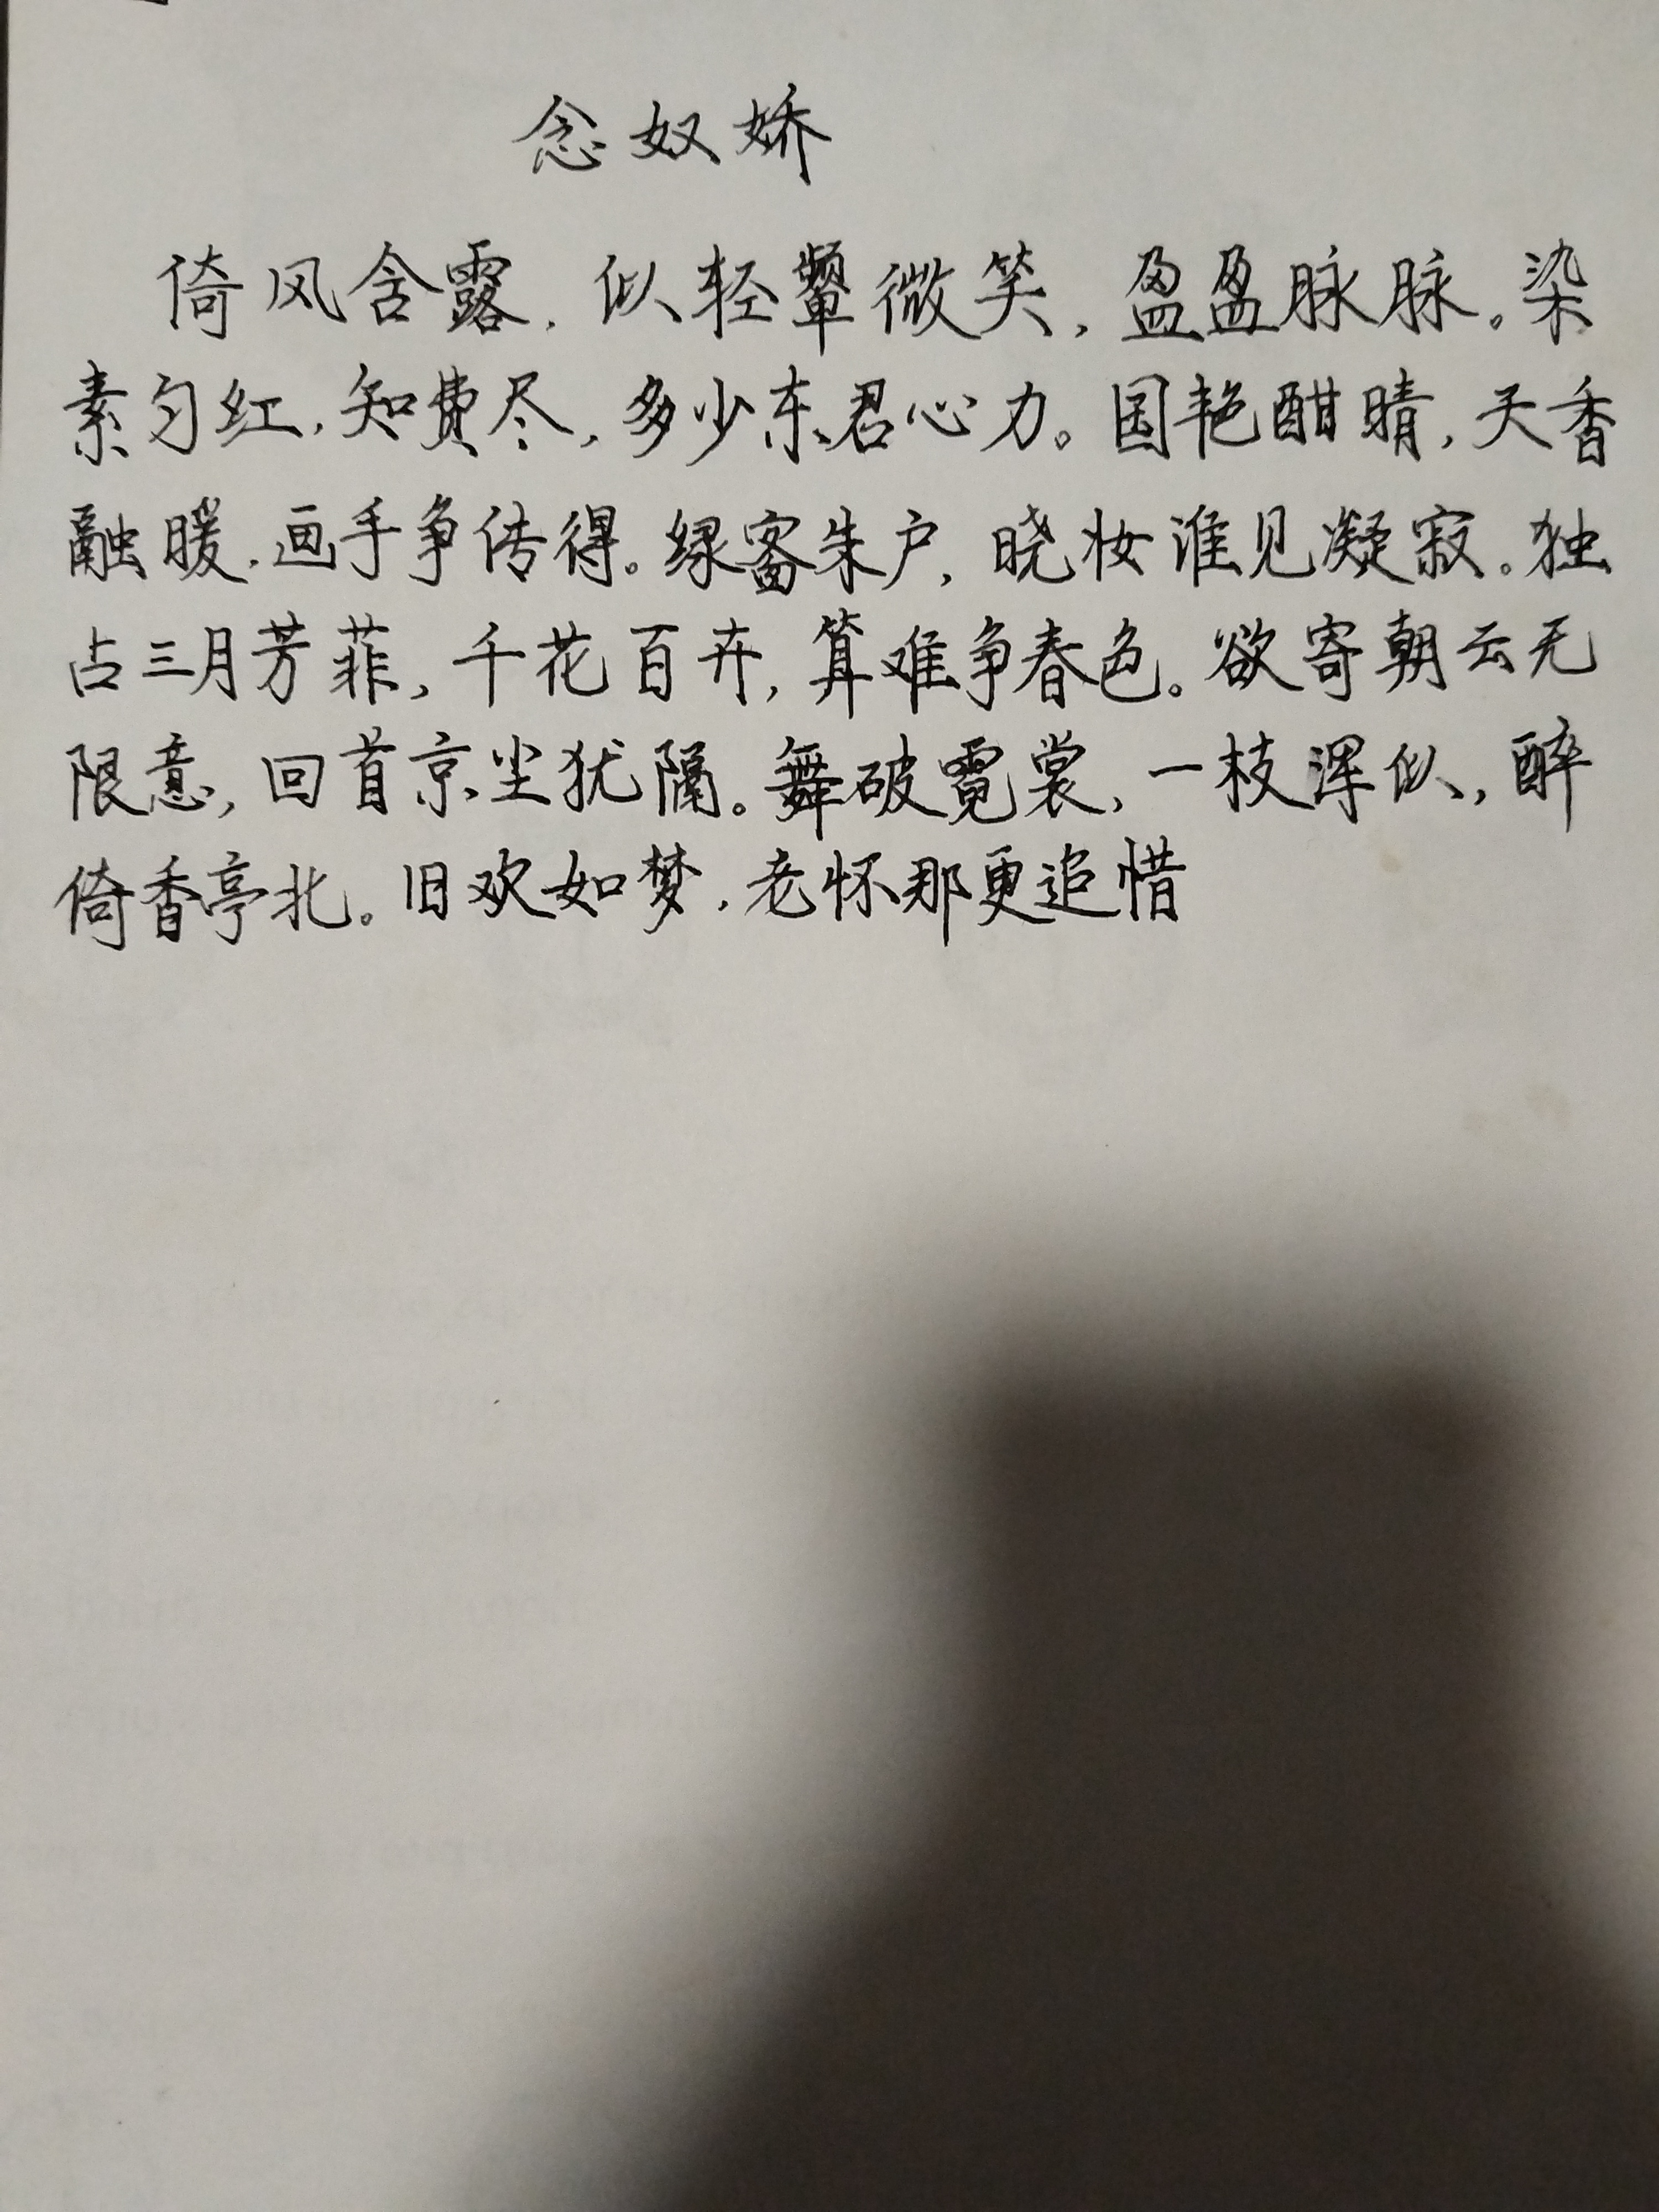 念奴娇
倚风含露，似轻颦微笑，盈盈脉脉。染
素匀红，知费尽，多少东君心力。国艳酣晴，天香
融暖，画手争传得。绿窗朱户，晓妆谁见凝寂。独
占三月芳菲，千花百卉，算难争春色。欲寄朝云无
限意，回首京尘犹隔。舞破霓裳，一枝浑似，醉
倚香亭北。旧欢如梦，老怀那更追惜